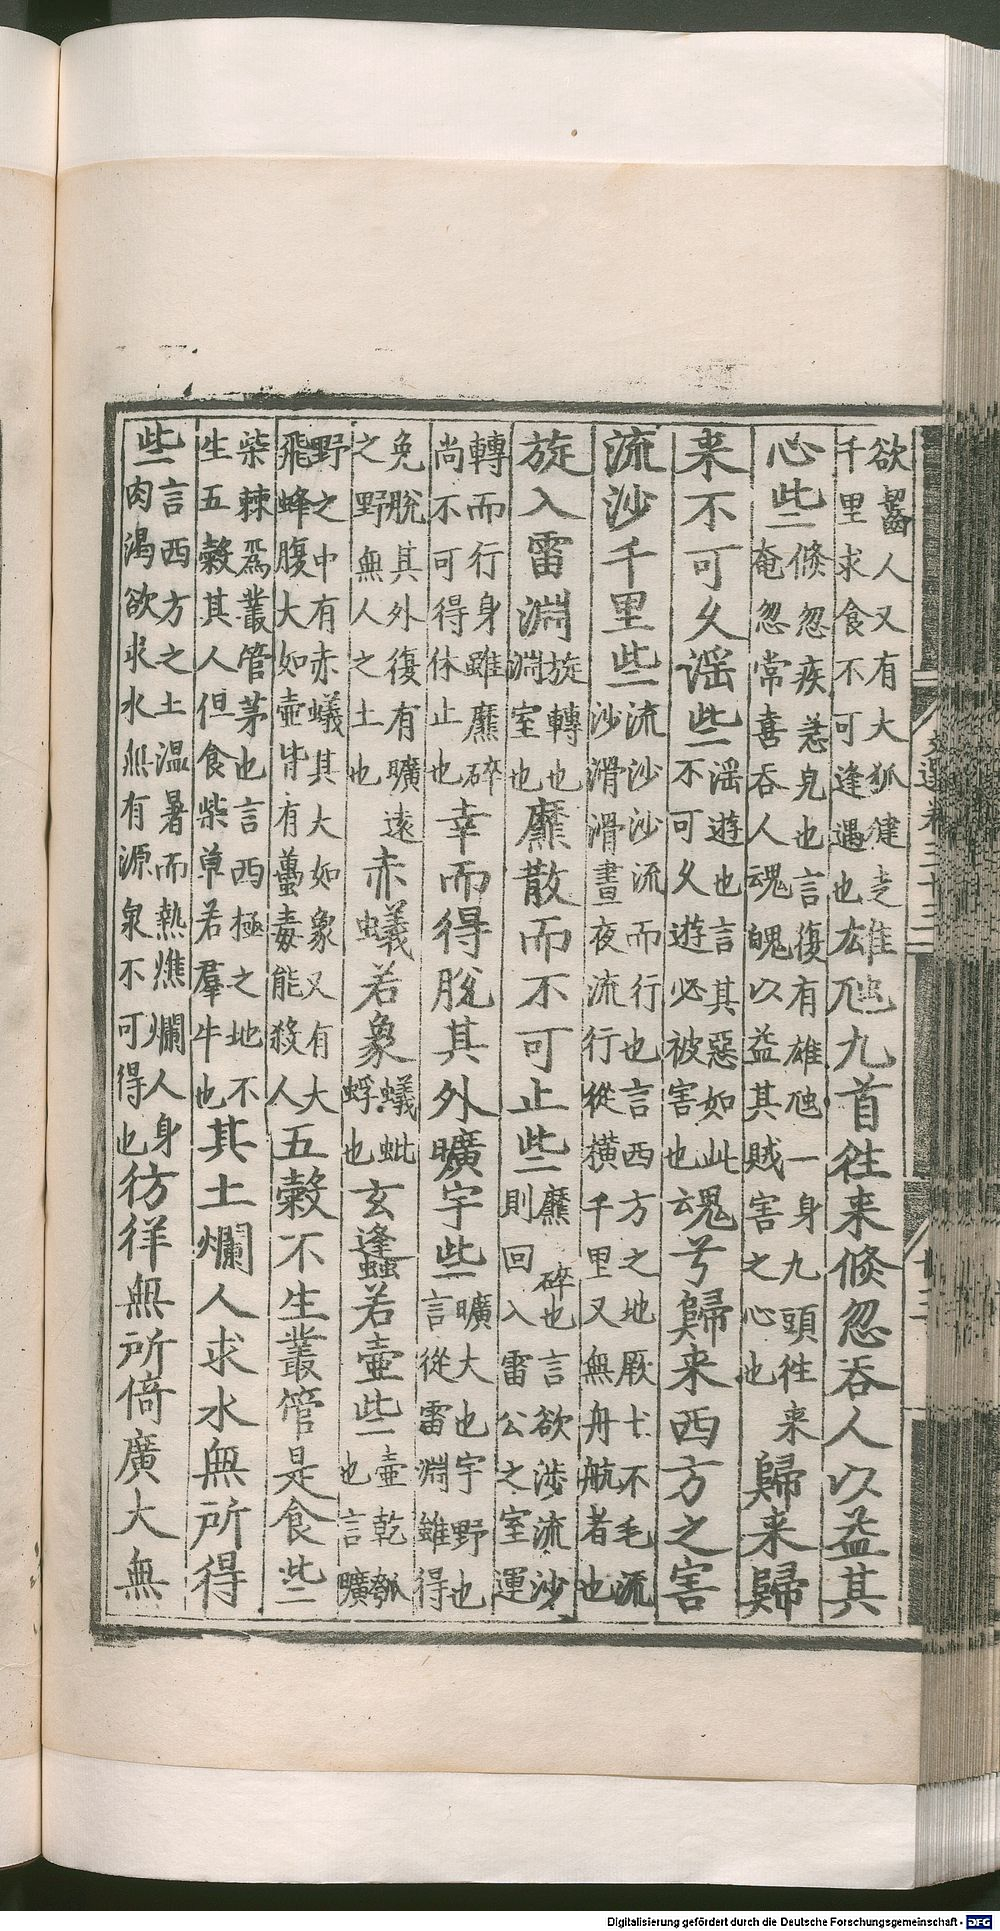 欲齧人又有大狐健走千里求食不可逢遇也雄虺九首往来倐忽吞人以益其
心些倐忽疾急皃也言復有雄虺一身九頭往来奄忽常喜吞人魂魄以益其賊害之心也歸来歸
来不可久淫些淫遊也言其惡如此不可久遊必被害也魂兮歸来西方之害
流沙千里些流沙沙流而行也言西方之地厥土不毛流沙滑滑晝夜流行從横千里又無舟航者也
旋入雷淵旋轉也淵室也靡散而不可止些靡碎也言欲涉流沙則回入雷公之室運
轉而行身雖靡碎尚不可得休止也幸而得脫其外曠宇些曠大也宇野也言從雷淵雖得
免脫其外復有曠遠之野無人之土也赤蟻若象蟻蚍蜉也玄蠭若壷些壷乾瓠也言曠
野之中有赤蟻其大如象又有大飛蜂腹大如壷皆有蠆毒能殺人五糓不生叢管是食些
柴棘爲叢管茅也言西極之地不生五穀其人但食柴草若羣牛也其土爛人求水無所得
些言西方之土温暑而熱燋爛人身肉渴欲求水無有源泉不可得也彷徉無所倚廣大無
文選卷三十三
十三
Digitalisierung gefördert durch die Deutsche Forschungsgemeinschaft - DFG